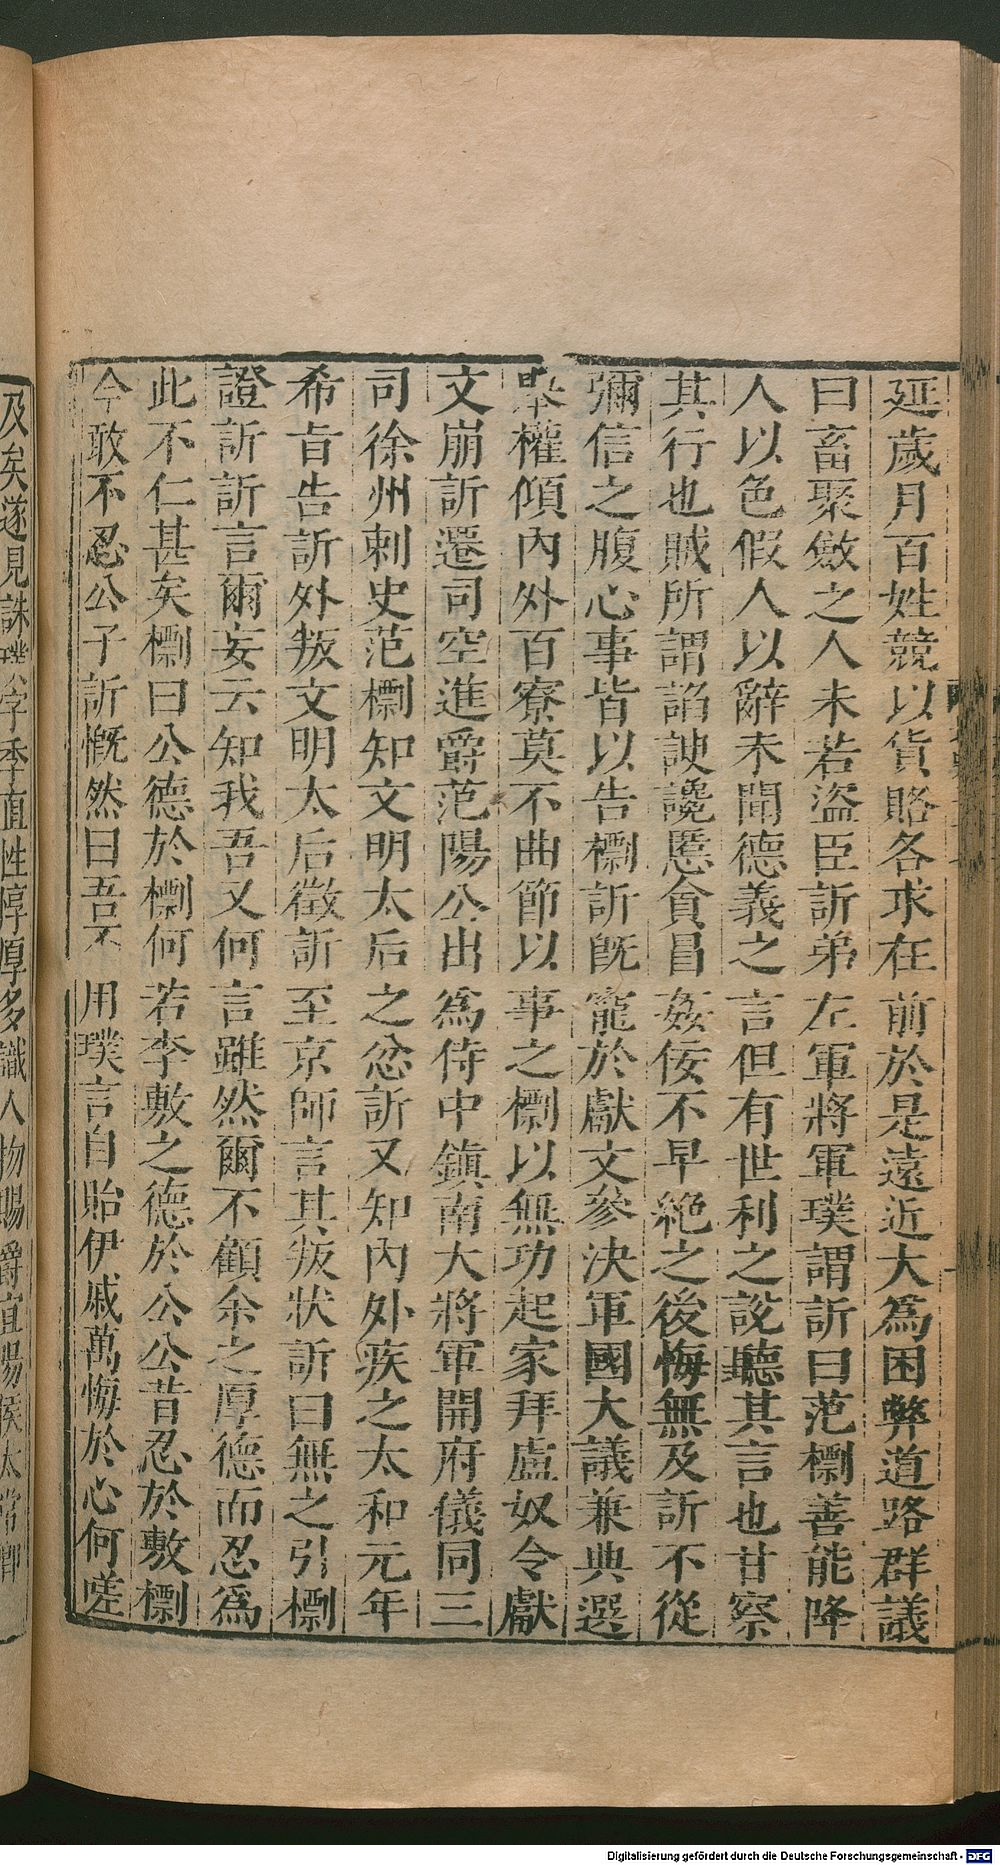 延歲月百姓競以貨賂各求在前於是遠近大爲困弊道路群議
曰畜聚斂之人未若盜臣訢弟左軍將軍璞謂訢曰范㯹善能降
人以色假人以辭未聞德義之言但有世利之說聽其言也甘察
其行也賊所謂諂諛讒慝貪冒姦佞不早絶之後悔無及訢不從
彌信之腹心事皆以告㯹訢旣寵於獻文參決軍國大議兼典選
舉權傾內外百寮莫不曲節以事之㯹以無功起家拜盧奴令獻
文崩訢遷司空進爵范陽公出爲侍中鎮南大將軍開府儀同三
司徐州刺史范㯹知文明太后之忿訢又知內外疾之太和元年
希旨告訢外叛文明太后徵訢至京師言其叛狀訢曰無之引㯹
證訢訢言爾妄云知我吾又何言雖然爾不顧余之厚德而忍爲
此不仁甚矣㯹曰公德於㯹何若李敷之德於公公昔忍於敷㯹
今敢不忍公乎訢慨然曰吾不用璞言自貽伊戚萬悔於心何嗟
及矣遂見誅璞字季直性惇厚多識人物賜爵宜陽侯太常卿
Digitalisierung gefördert durch die Deutsche Forschungsgemeinschaft - DFG